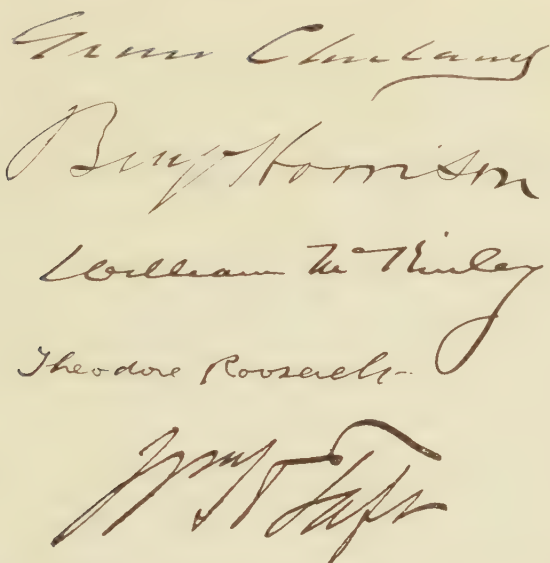 Grover Cleveland
Benj Harrison
William McKinley
Theodore Roosevelt
Wm H Taft